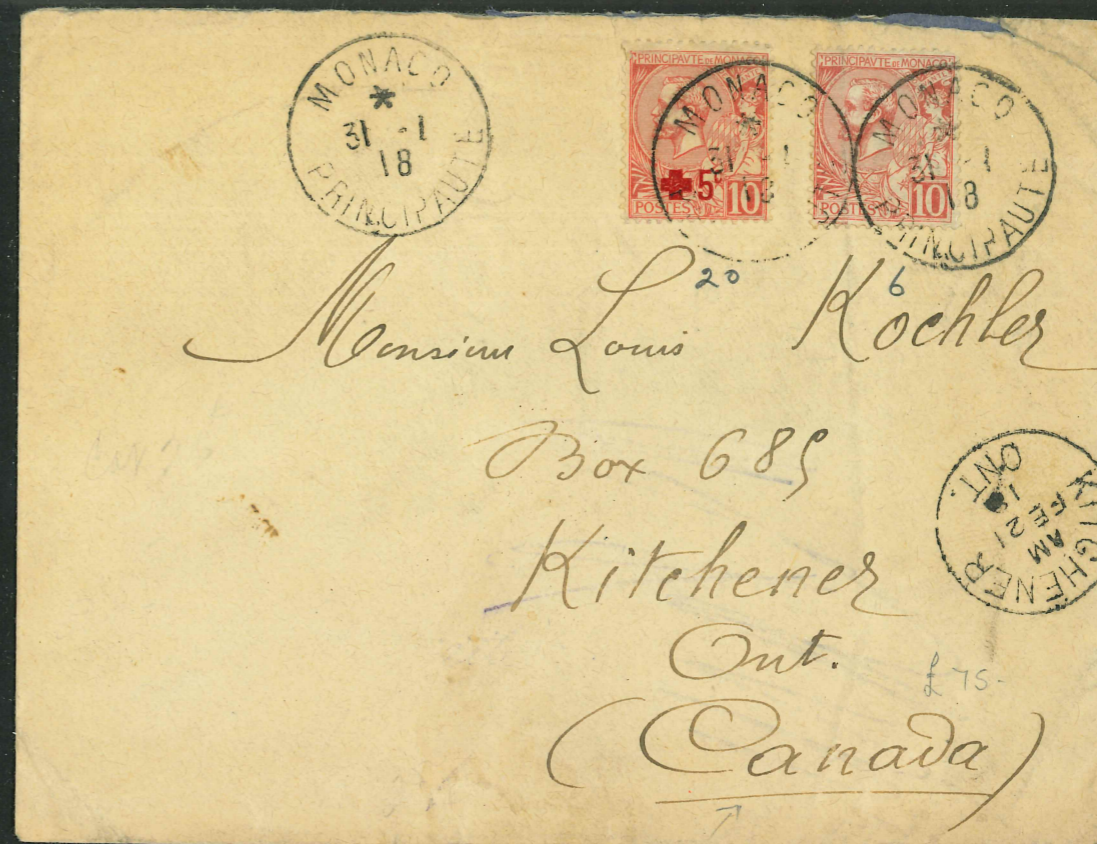 MONACO
*
31 -1
18
PRINCIPAUTE
PRINCIPAVTE DE MONACO
+5
POSTES 10
MONACO
*
31 -1
18
PRINCIPAVTE DE MONACO
POSTES 10
MONACO
31 -1
18
PRINCIPAUTE
20
6
Monsieur Louis Kochler
Box 685
Kitchener
Ont.
(Canada)
KITCHENER
AM
FE 21
18
ONT.
£75-